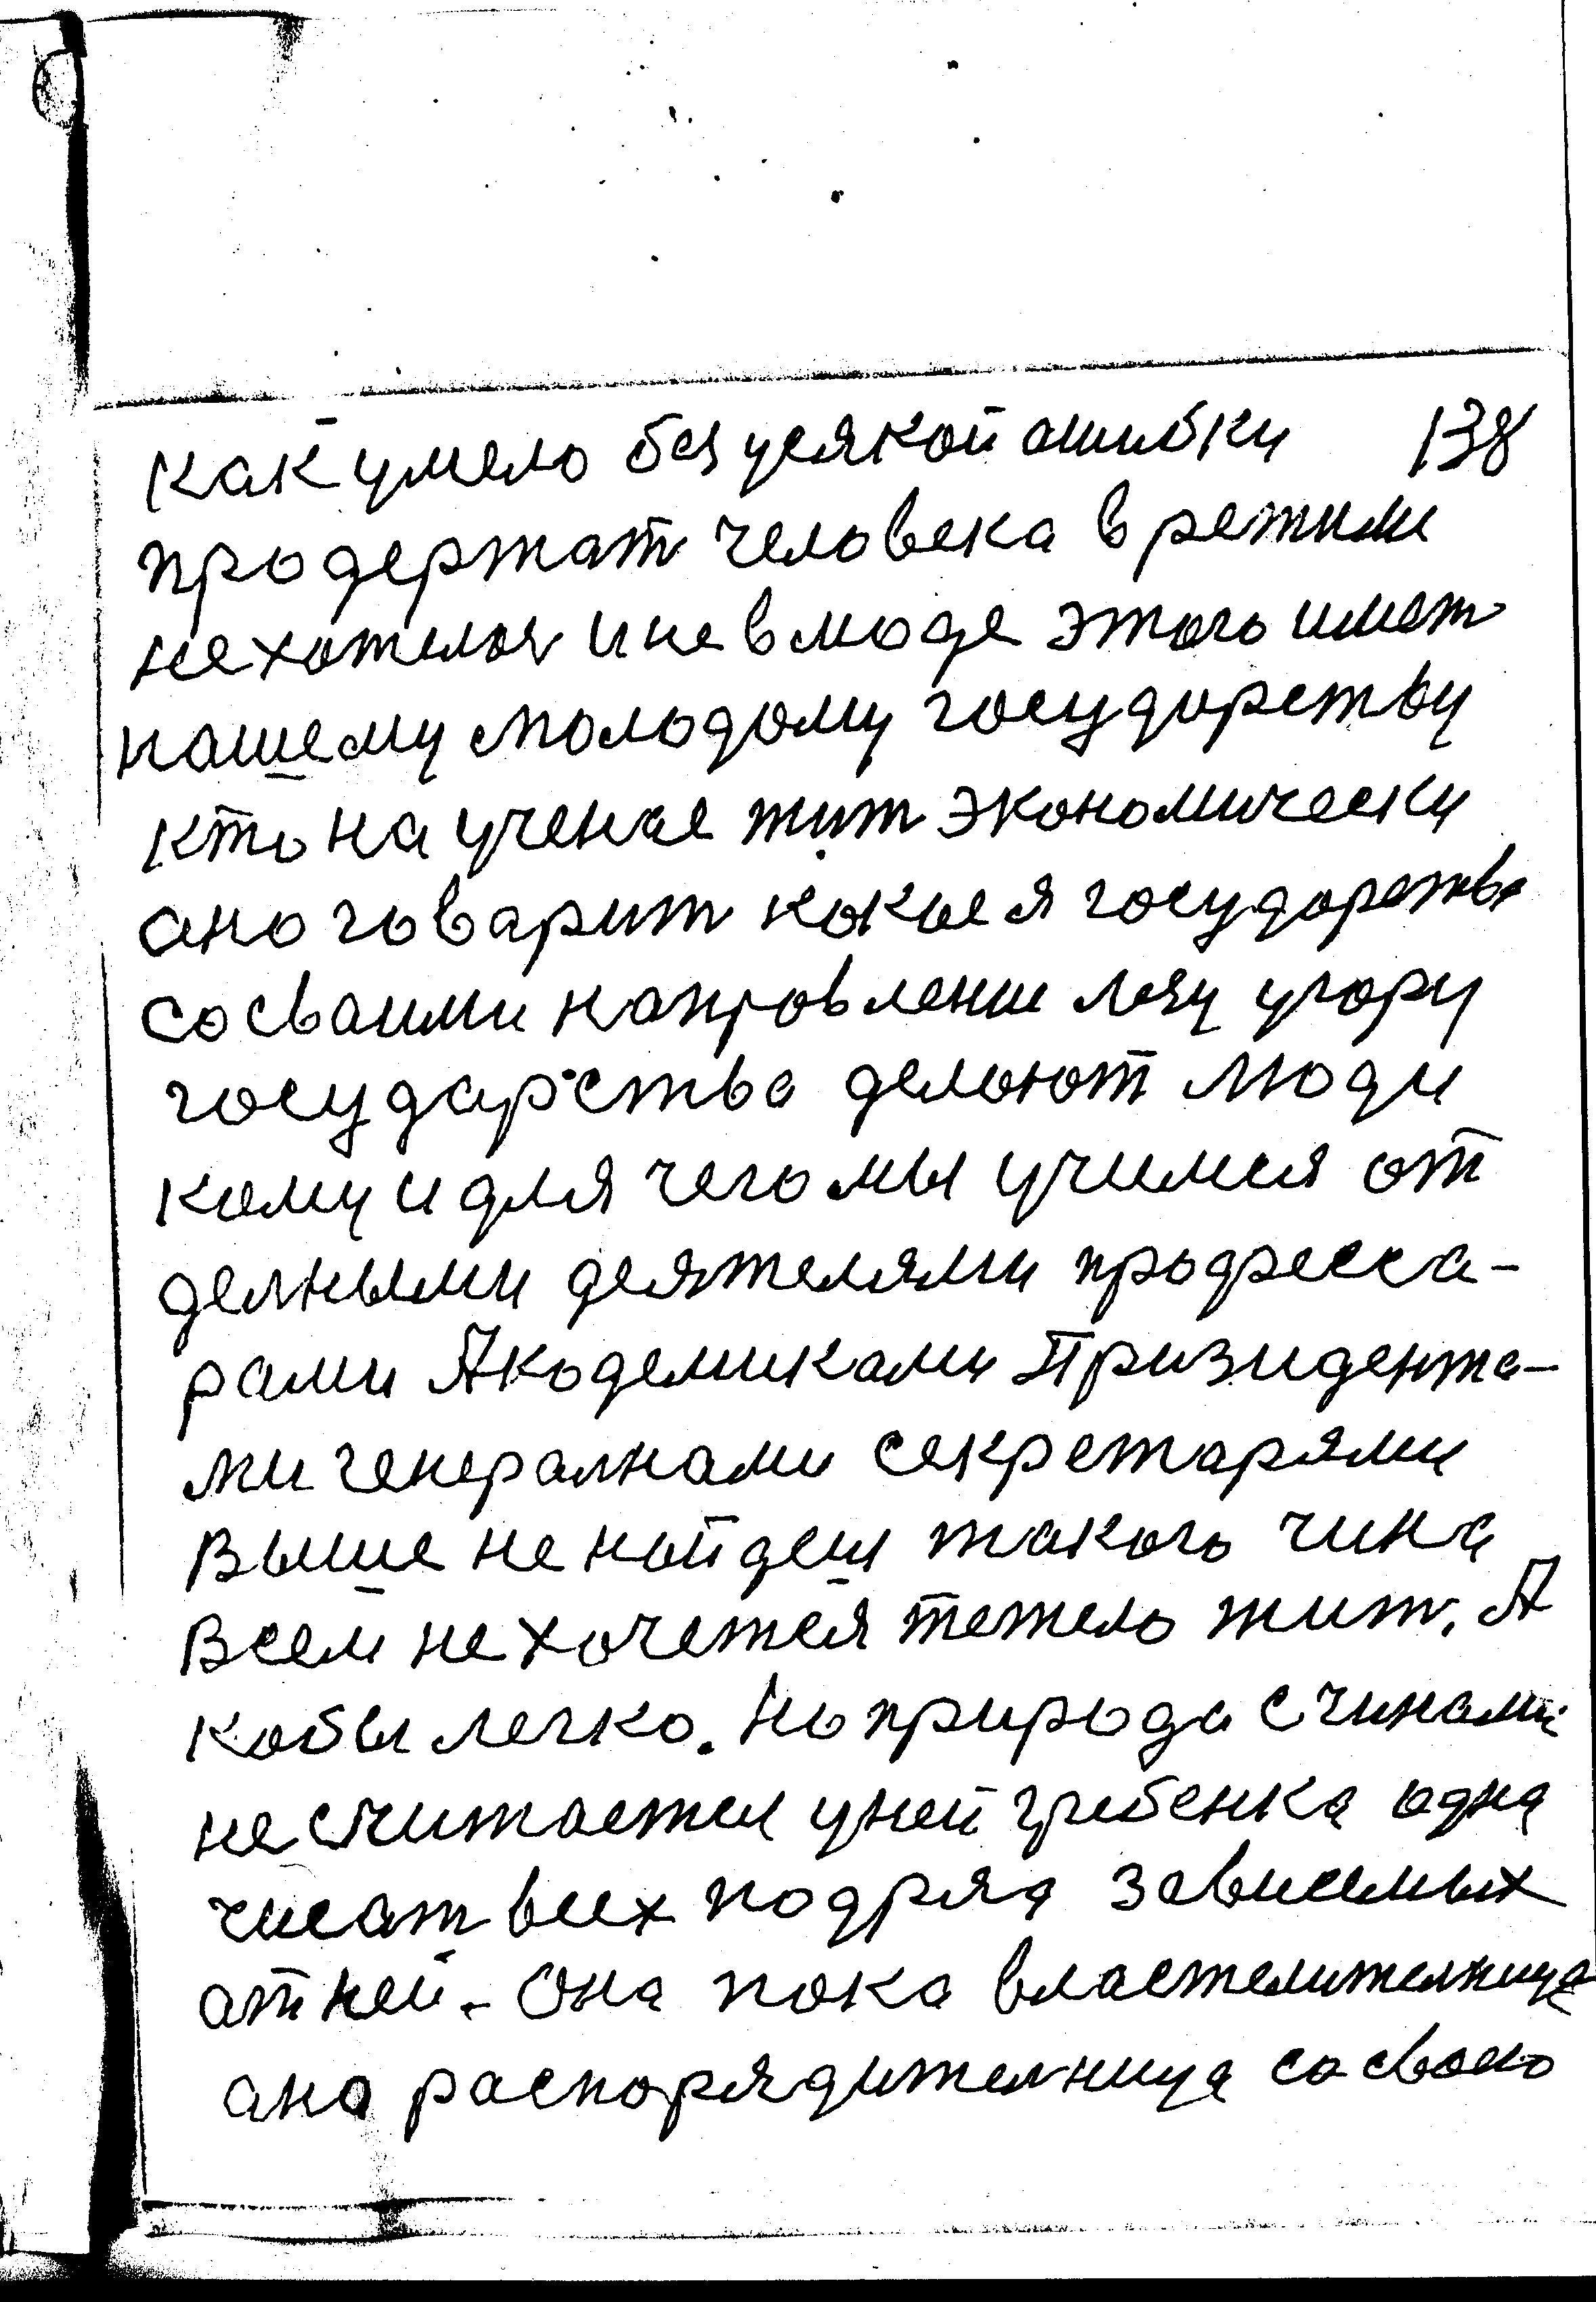 как умело без усякой ошибки 138
продержат человека в режиме
не хотелос и не в моде этого имет
нашему молодому государству
кто научение жит экономически
ано говарит какое я государства
со сваими направление лезу угору
государства делают люди
кому и для чего мы учимся от
делными деятелями профресса-
рами Академиками Призидента-
ми генералнами секретарями
Выше не найдеш такого чина
Всем не хочется тежело жит. А
кабы легко. Но природа с чинами
не считается уней гребенка одна
чисат всех подряд зависемых
ат ней. Она пока властелителница
ана распорядителница со своею